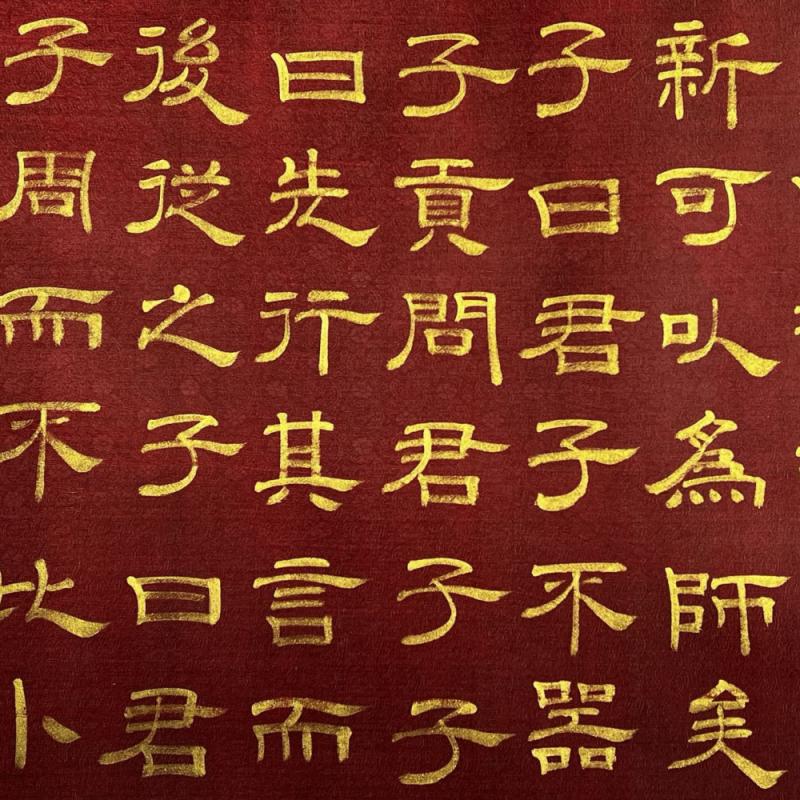 新可以為師矣
子曰君子不器
子貢問君子子
曰先行其言而
後從之子曰君
子周而不比小